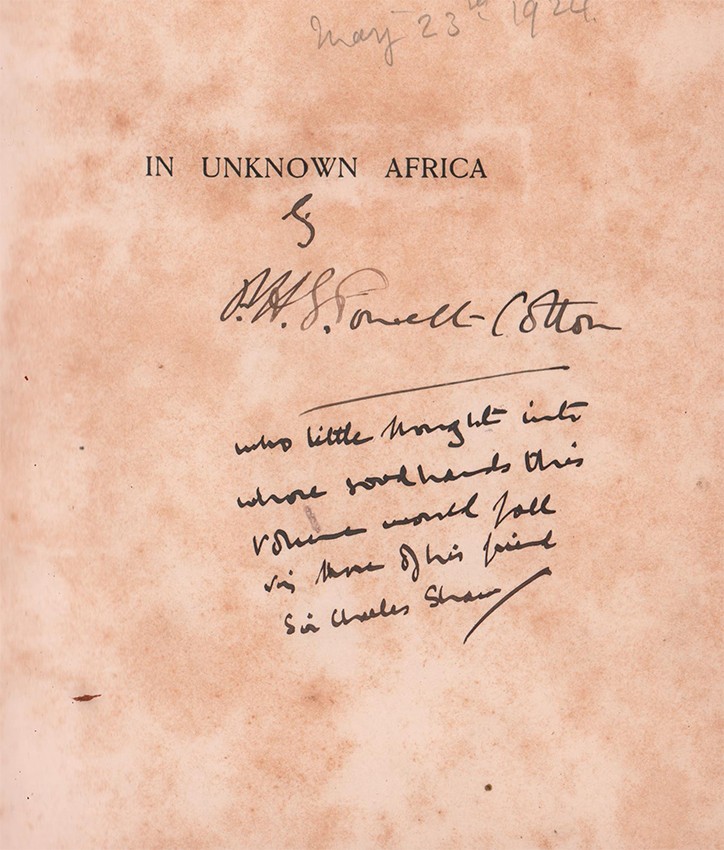 May 23rd 1924.
IN UNKNOWN AFRICA
By
P.H.G. Powell-Cotton
who little thought into
whose good hands this
volume would fall
viz those of his friend
Sir Charles Shaw